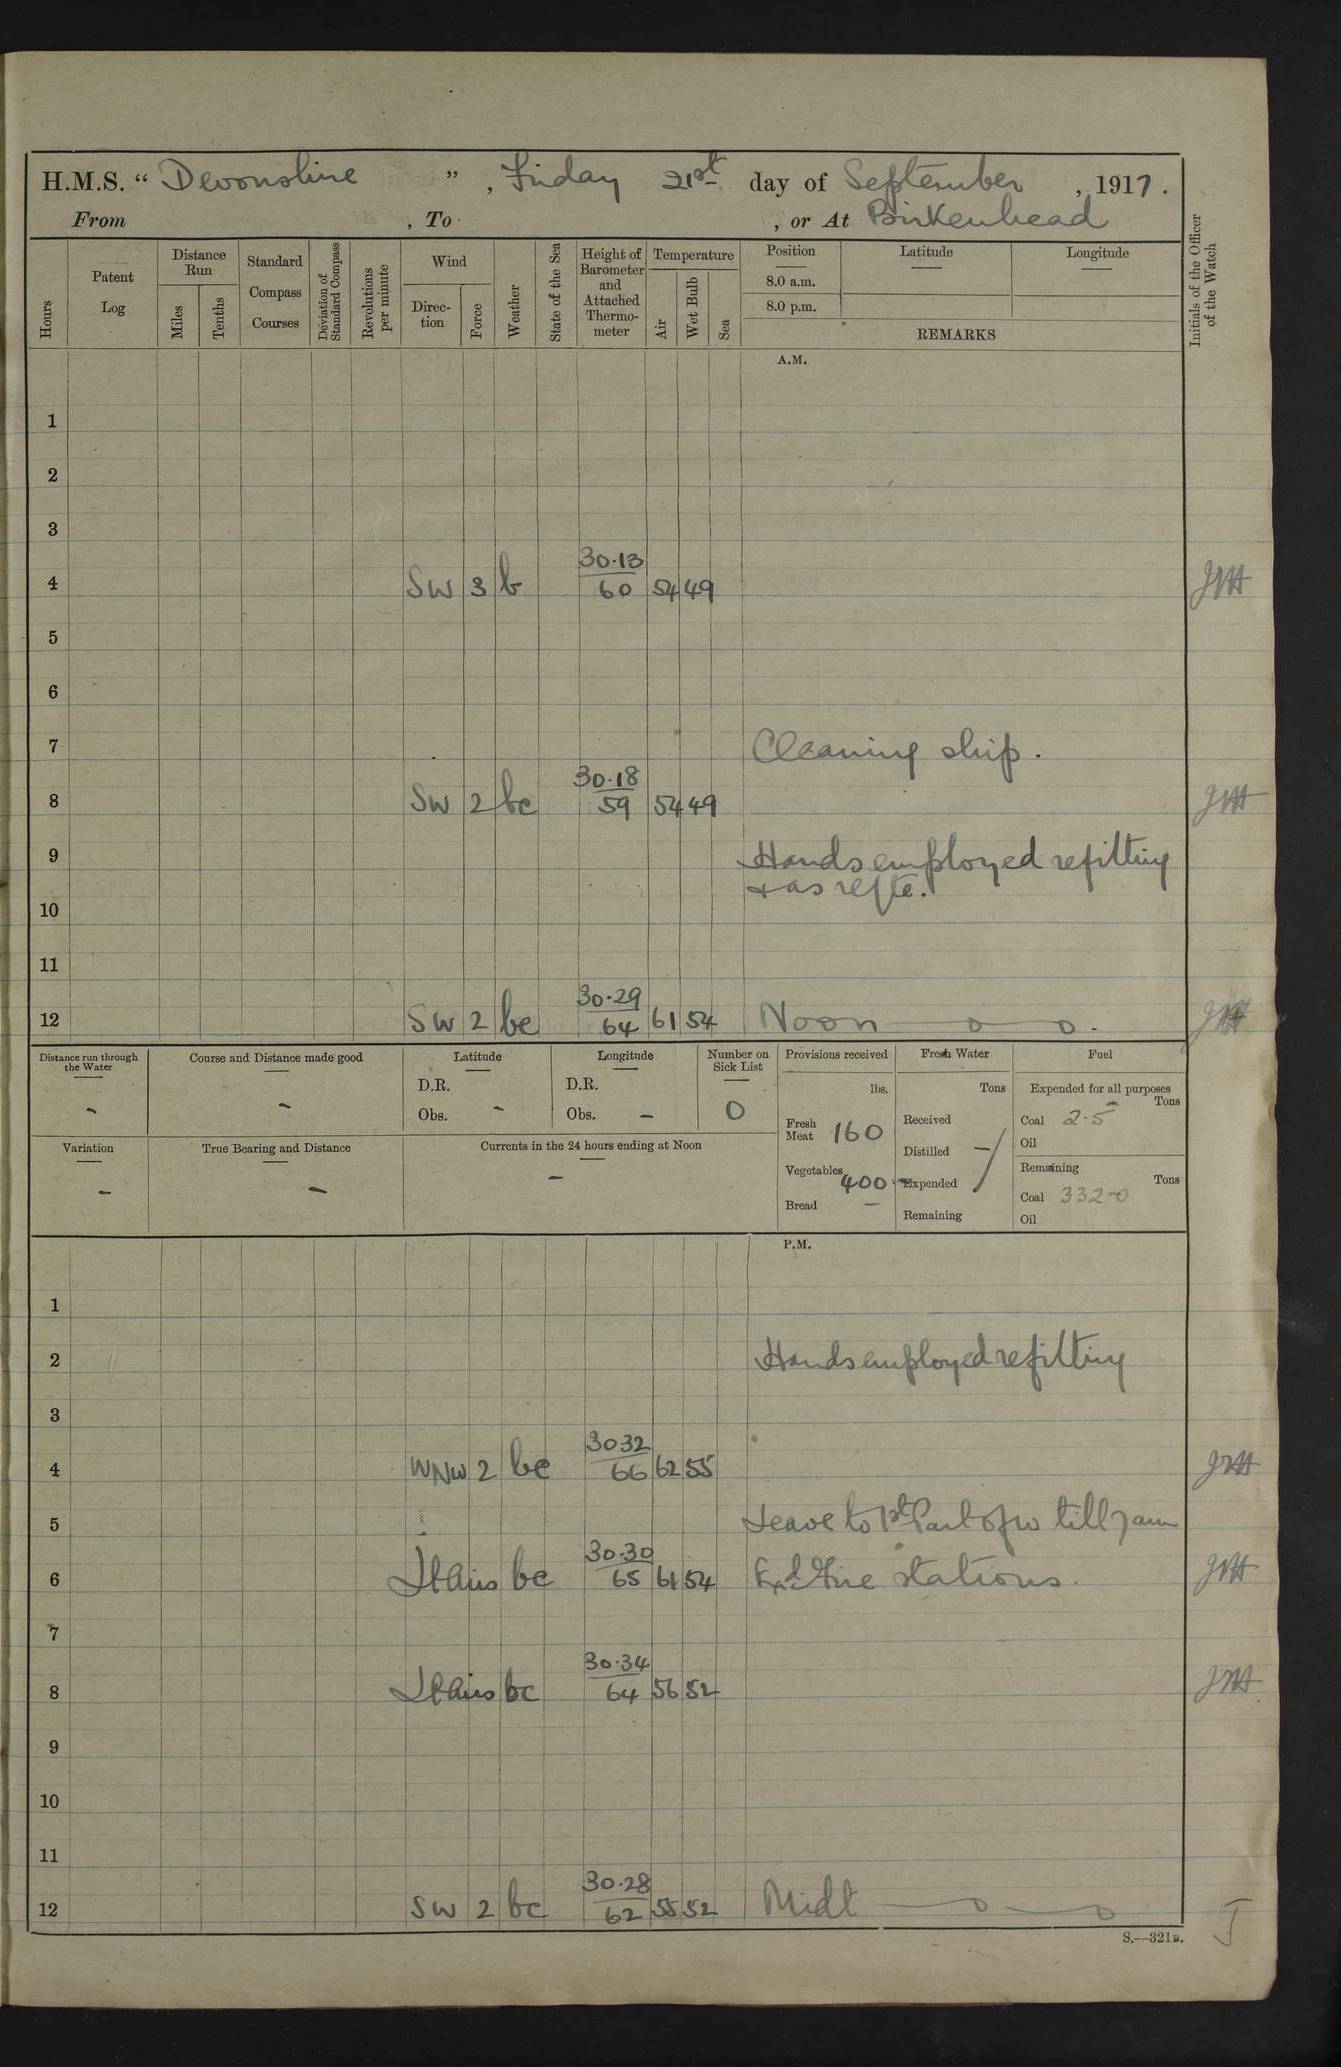 H.M.S. “ Devonshire ” , Friday 21st day of September , 1917 .
From , To , or At Birkenhead
Hours
Patent Log
Distance Run
Miles
Tenths
Standard Compass Courses
Deviation of Standard Compass
Revolutions per minute
Wind
Direc-tion
Force
Weather
State of the Sea
Height of Barometer and Attached Thermo-meter
Temperature
Air
Wet Bulb
Sea
Position
8.0 a.m.
8.0 p.m.
Latitude
Longitude
REMARKS
Initials of the Officer of the Watch
A.M.
1
2
3
30·13
4 SW 3 b 60 54 49
5
6
7 Cleaning ship.
30·18
8 SW 2 bc 59 54 49
9 Hands employed refitting
& as reqte.
10
11
30·29
12 SW 2 bc 64 61 54 Noon
Distance run through the Water
-
Course and Distance made good
-
Latitude
D.R.
Obs. -
Longitude
D.R.
Obs. -
Number on Sick List
0
Provisions received
lbs.
Fresh Meat 160
Vegetables 400
Bread -
Fresh Water
Tons
Received
Distilled -
Expended
Remaining
Fuel
Expended for all purposes
Tons
Coal 2-5
Oil
Remaining
Tons
Coal 332-0
Oil
Variation
-
True Bearing and Distance
-
Currents in the 24 hours ending at Noon
-
P.M.
1
2 Hands employed refitting
3
30 32
4 WNW 2 bc 66 62 55
5 Leave to 1st Part of W till 7 am
30·30
6 Lt Airs bc 65 61 54 Exd Fire stations.
7
30·34
8 Lt Airs bc 64 56 52
9
10
11
30·28
12 SW 2 bc 62 55 52 Midt
S.—321B.